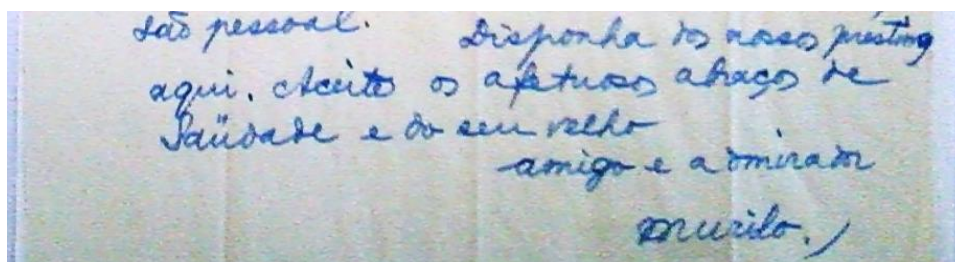 são pessoal. Disponha dos nossos préstimos
aqui. Aceite os afetuosos abraços de
Saüdade e do seu velho
amigo e admirador
Murilo.